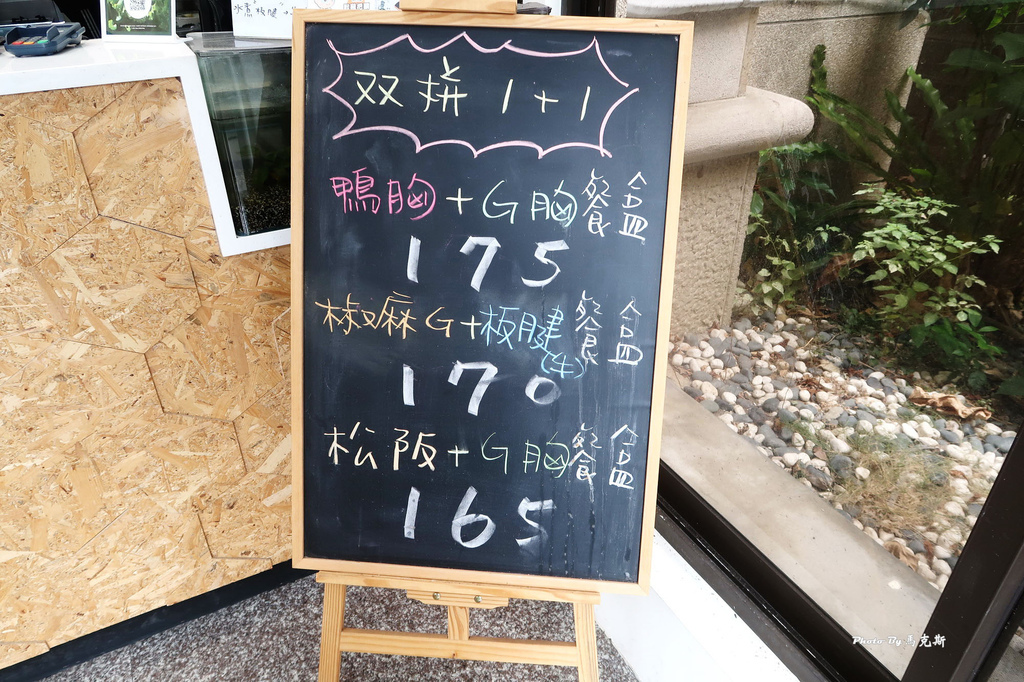 水煮板腱
双拼 1+1
鴨胸+G胸餐盒
175
椒麻G+板腱餐盒
(牛)
170
松阪+G胸餐盒
165
Photo By 馬克斯